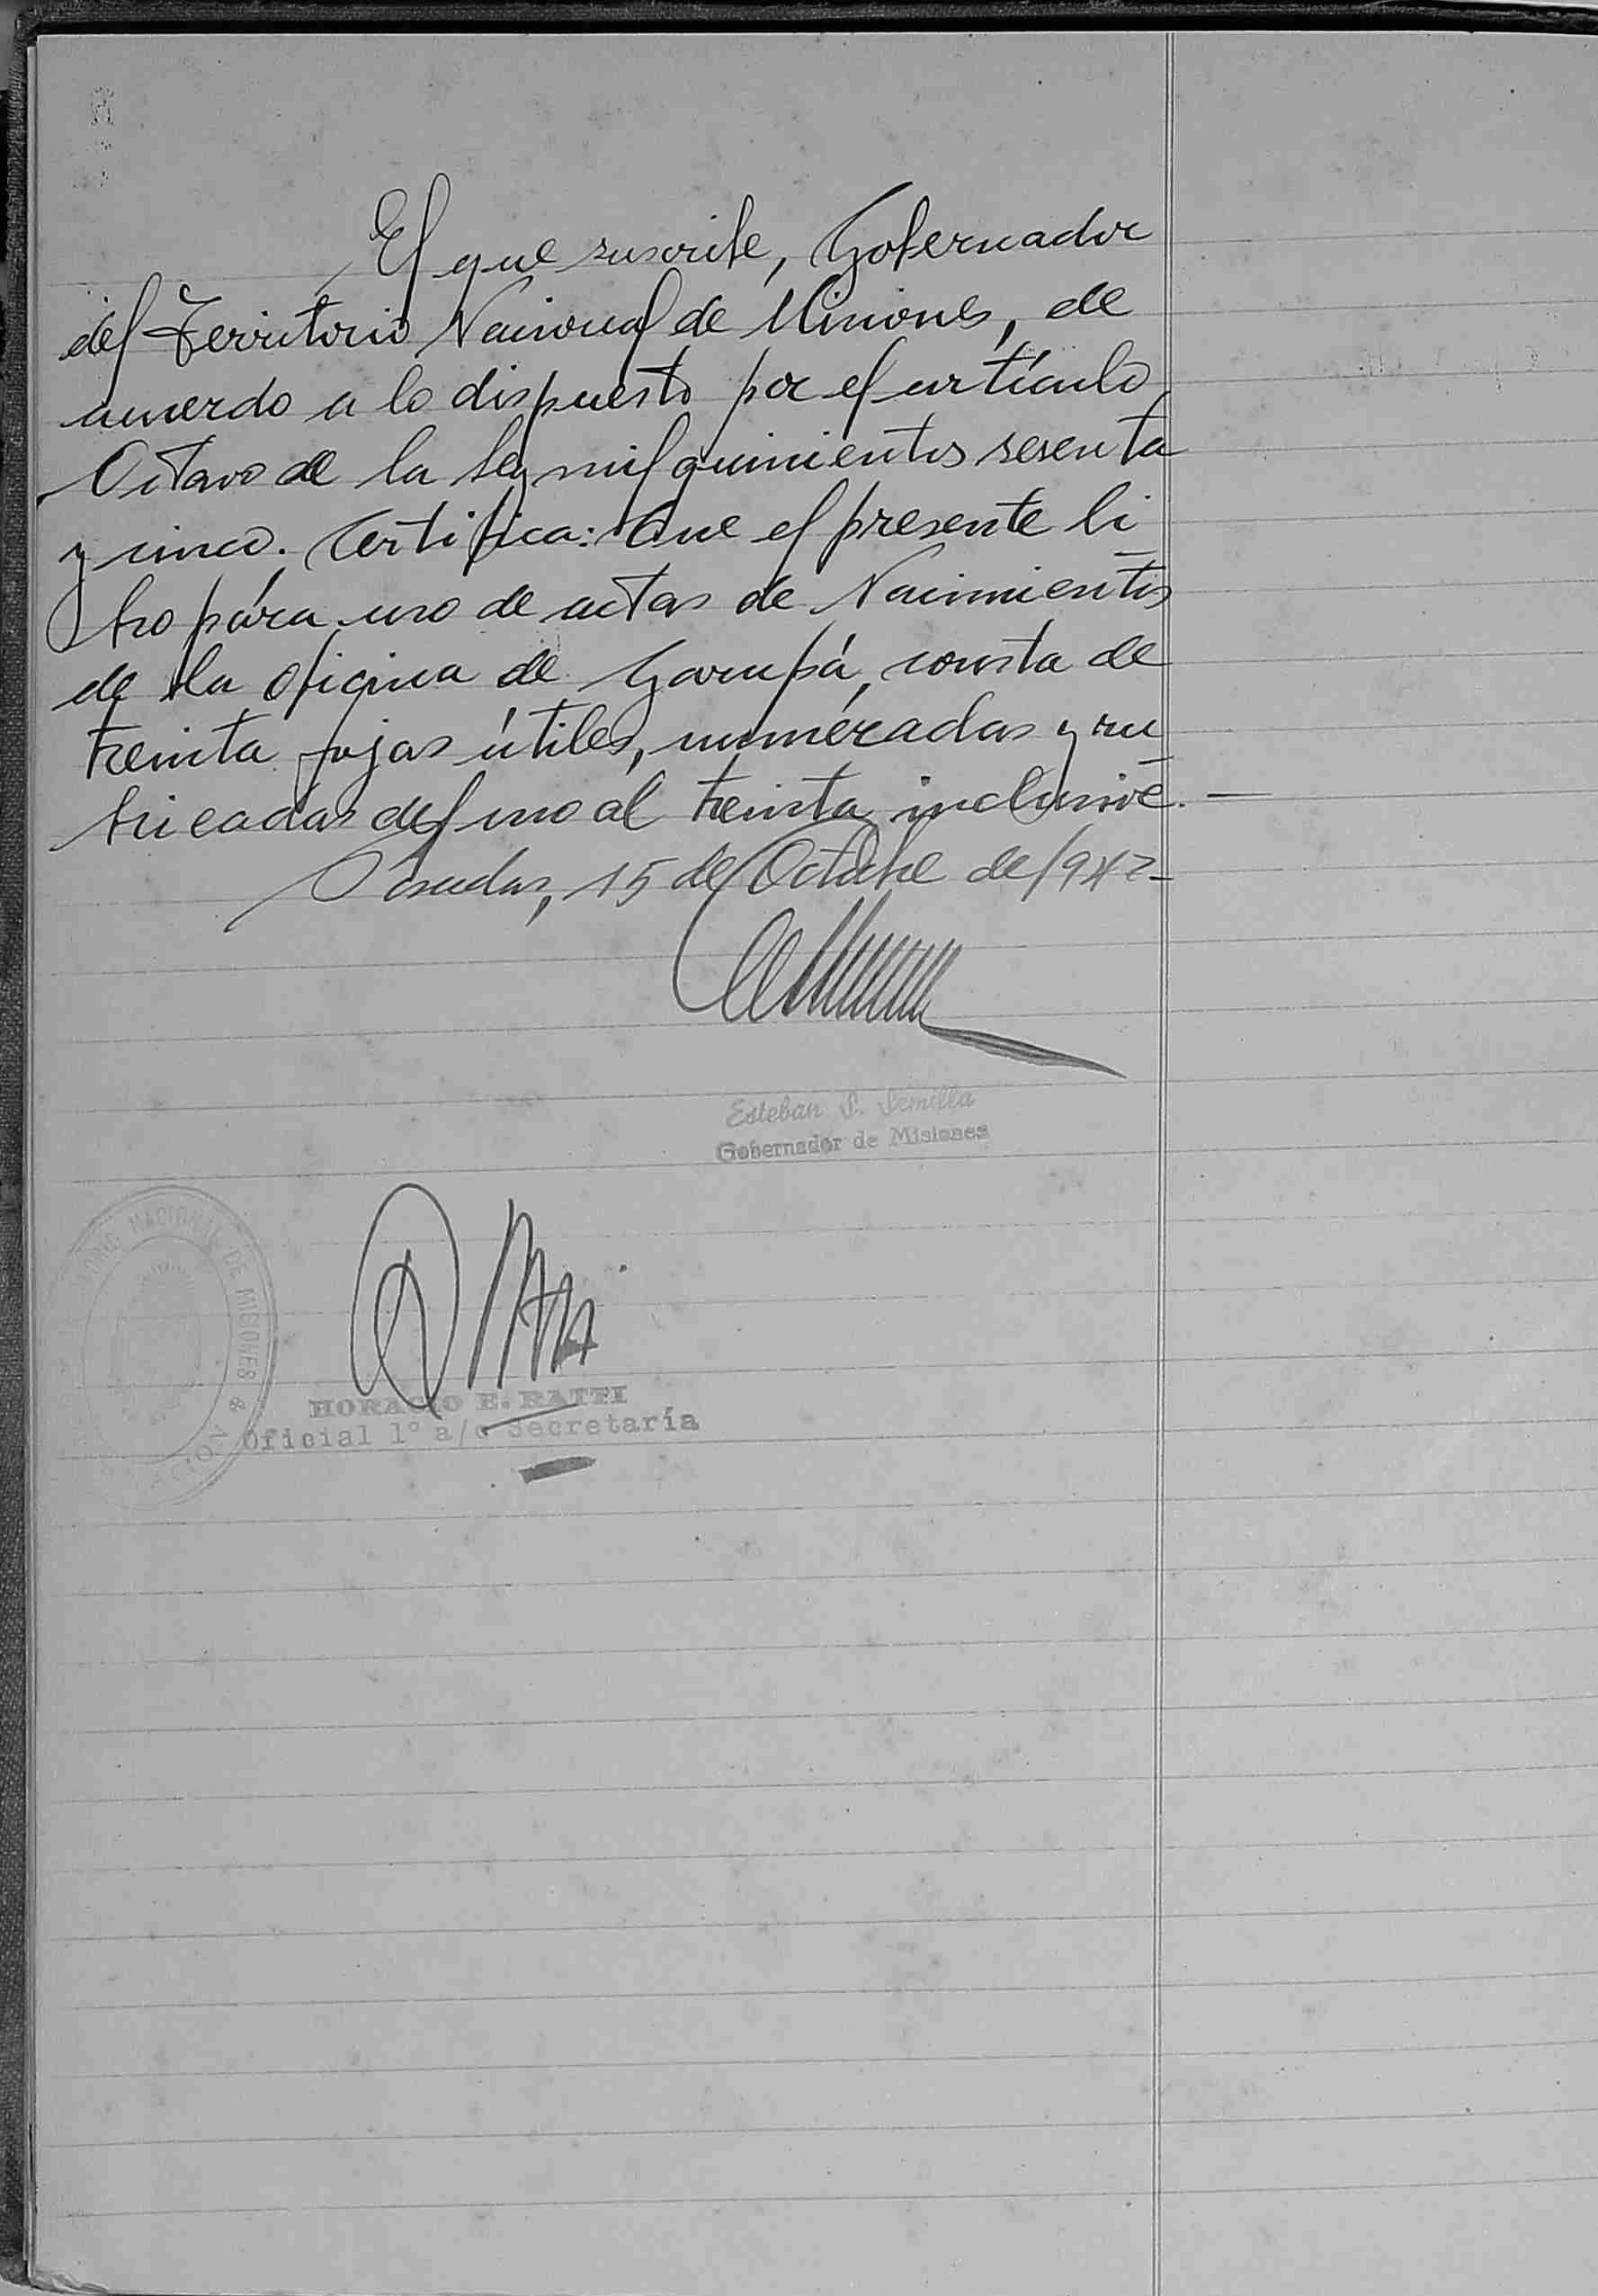 El que suscribe, Gobernador
del Territorio Nacional de Misiones, de
acuerdo a lo dispuesto por el artículo
Octavo de la ley mil quinientos sesenta
y cinco. Certifica: Que el presente li
bro pára uso de actas de Nacimientos
de la oficina de Garupá, consta de
treinta fojas útiles, numéradas y ru
bricadas del uno al treinta inclusivé. —
Posadas, 15 de Octubre de 1942-
Esteban S. Semilla
Gobernador de Misiones
NACIONAL DE MISIONES
HORACIO E. RATTI
Oficial 1° a/c Secretaría